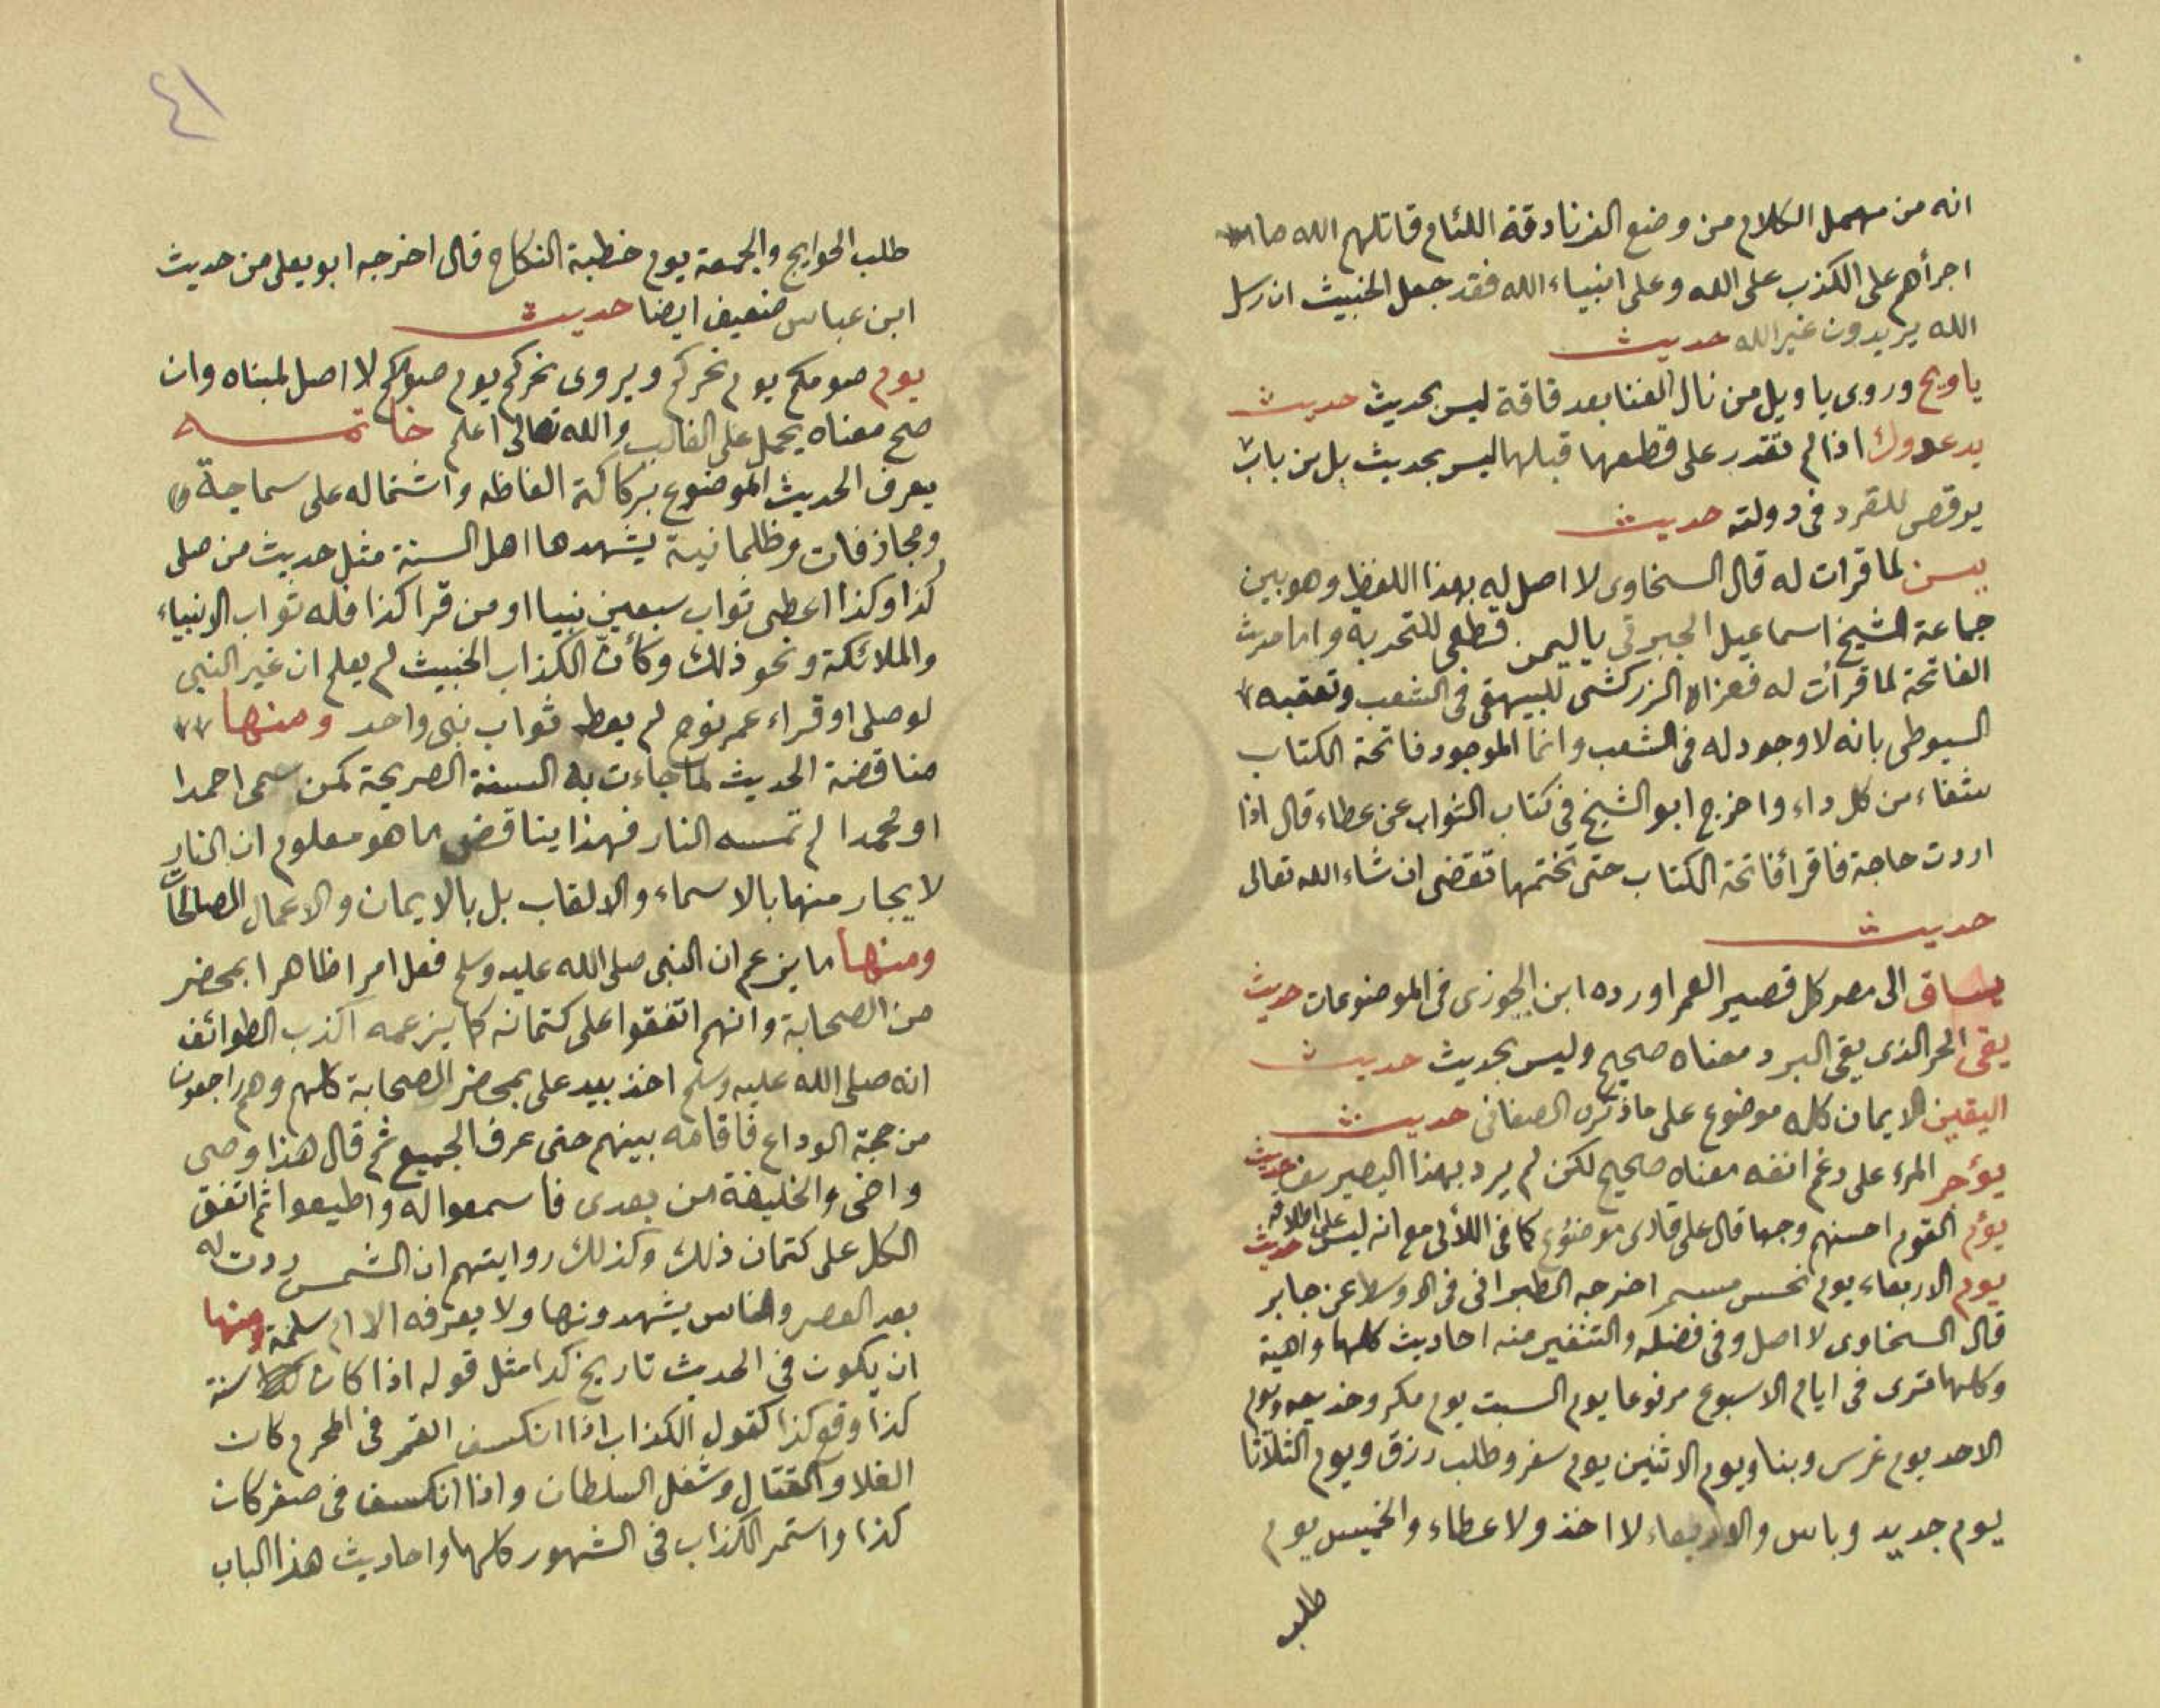 انه من مهمل الكلام من وضع الزنادقة اللئام قاتلهم الله ما
اجرأهم على الكذب على الله وعلى انبياء الله فقد جعل الخبيث ان رسل
الله يريدون غير الله حديث
ياويح وروى يا ويل من نال الغنا بعد فاقة ليس بحديث حديث
يد عدوك اذا لم تقدر على قطعها قبلها ليس بحديث بل من باب
يرقص للقرد في دولته حديث
يس لما قرات له قال السخاوى لا اصل له بهذا اللفظ وهو بين
جماعة الشيخ اسماعيل الجبرتي باليمن قطعى للتجربة واما حديث
الفاتحة لما قرأت له فعزاه الزركشى للبيهقى في الشعب وتعقبه
السيوطى بانه لا وجود له في الشعب وانما الموجود فاتحة الكتاب
شفاء من كل داء واخرج ابو الشيخ في كتاب الثواب عن عطاء قال اذا
اردت حاجة فاقرأ فاتحة الكتاب حتى تختمها تقضى ان شاء الله تعالى
حديث
يساق الى مصر كل قصير العمر اورده ابن الجوزى في الموضوعات حديث
يقى الحر الذى يقى البرد معناه صحيح وليس بحديث حديث
اليقين الايمان كله موضوع على ما ذكره الصغانى حديث
يؤجر المرء على رغم انفه معناه صحيح لكن لم يرد بهذا حديث
يؤم القوم احسنهم وجها قال على قارى موضوع كما في اللألى مع انه ليس على اطلاقه حديث
يوم الاربعاء يوم نحس مستمر اخرجه الطبرانى في الاوسط عن جابر
قال السخاوى لا اصل وفى فضله والتنفير منه احاديث كلها واهية
وكلها مترى في ايام الاسبوع مرفوعا يوم السبت يوم مكر وخديعه ويوم
الاحد يوم غرس وبنا ويوم الاثنين يوم سفر وطلب رزق ويوم الثلاثا
يوم حديد وباس والاربعاء لا اخذ ولا عطاء والخميس يوم
طلب
٤١
طلب الحوايج والجمعة يوم خطبة النكاح قال اخرجه ابو يعلى من حديث
ابن عباس ضعيف ايضا حديث
يوم صومكم يوم نحركم ويروى نحركم يوم صومكم لا اصل لمبناه وان
صح معناه يحمل على الغالب والله تعالى اعلم خاتمه
يعرف الحديث الموضوع بركاكة الفاظه واشتماله على سماجة
ومجازفات وظلمانية يشهدها اهل السنة مثل حديث من صلى
كذا وكذا اعطى ثواب سبعين نبيا او من قرا كذا فله ثواب الانبياء
والملائكة ونحو ذلك وكأن الكذاب الخبيث لم يعلم ان غير النبى
لو صلى او قراء عمر نوح لم يعط ثواب نبى واحد ومنها
مناقضة الحديث لما جاءت به السنة الصريحة كمن سمى احمدا
او محمدا لم تمسه النار فهذا يناقض ما هو معلوم ان النار
لا يجار منها بالاسماء والالقاب بل بالايمان والاعمال الصالحات
ومنها ما يزعم ان النبى صلى الله عليه وسلم فعل امرا ظاهرا بمحضر
من الصحابة وانهم اتفقوا على كتمانه كما يزعمه اكذب الطوائف
انه صلى الله عليه وسلم اخذ بيد على بمحضر الصحابة كلهم وهم راجعون
من حجة الوداع فاقامه بينهم حتى عرف الجميع ثم قال هذا وصى
واخى والخليفة من بعدى فاسمعوا له واطيعوا ثم اتفق
الكل على كتمان ذلك وكذلك روايتهم ان الشمس ردت له
بعد العصر والناس يشهدونها ولا يعرفه الا ام سلمة ومنها
ان يكون في الحديث تاريخ كذا مثل قوله اذا كان سنة
كذا وقع كذا كقول الكذاب اذا انكسف القمر في المحرم كان
الغلا والقتال وشغل السلطان واذا انكسف في صفر كان
كذا واستمر الكذاب في الشهور كلها واحاديث هذا الباب